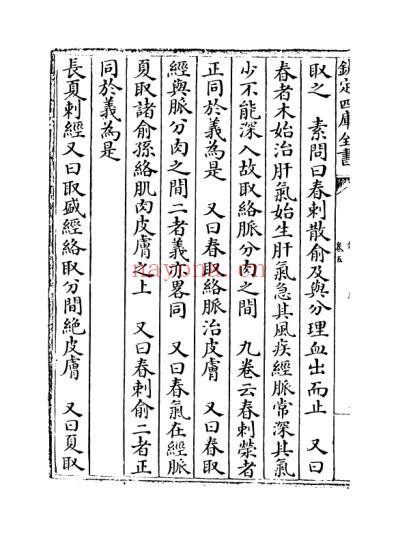 欽定四庫全書
卷五
取之　素問曰春刺散俞及與分理血出而止　又曰
春者木始治肝氣始生肝氣急其風疾經脈常深其氣
少不能深入故取絡脈分肉之間　九卷云春刺滎者
正同於義為是　又曰春取絡脈治皮膚　又曰春取
經與脈分肉之間二者義亦畧同　又曰春氣在經脈
夏取諸俞孫絡肌肉皮膚之上　又曰春刺俞二者正
同於義為是
長夏刺經又曰取盛經絡取分間絶皮膚　又曰夏取
nayona.cn